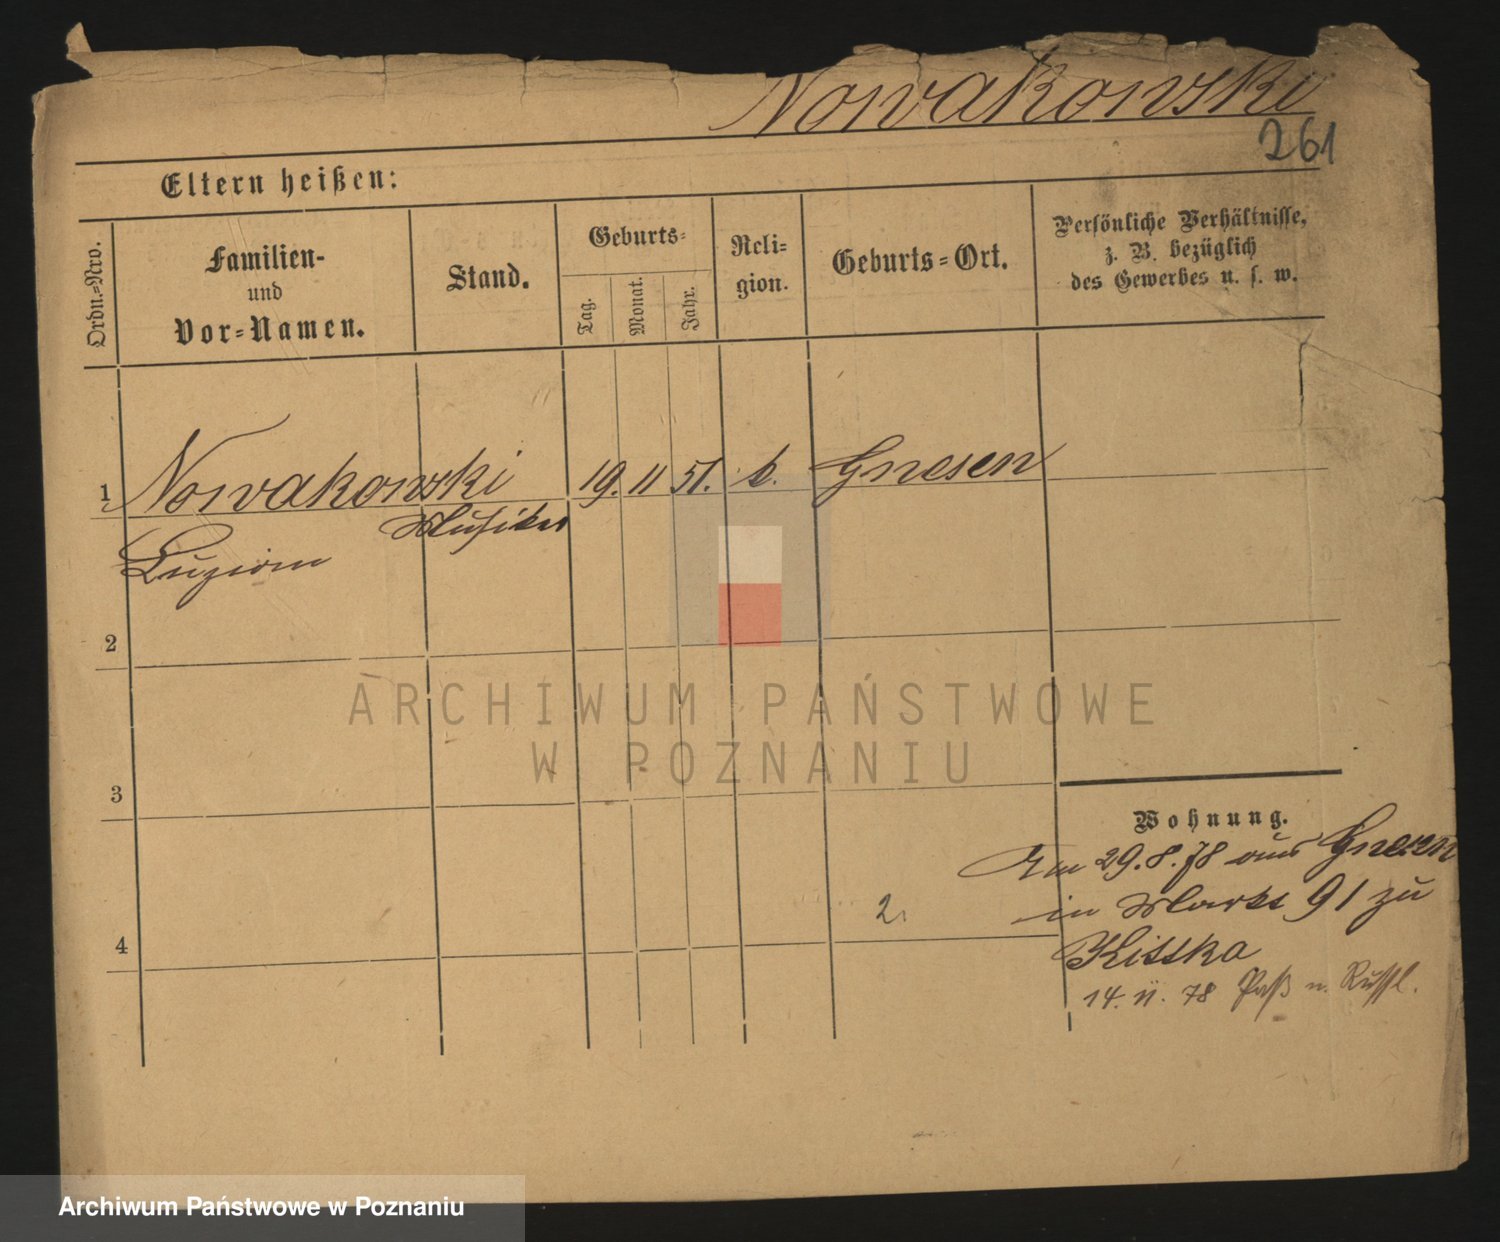 Nowakowski
261
Eltern heißen:
Ordn.-Nro.
Familien-
und
Vor-Namen.
Stand.
Geburts-
Tag.
Monat.
Jahr.
Reli-
gion.
Geburts-Ort.
Persönliche Verhältnisse,
z. B. bezüglich
des Gewerbes u. s. w.
1 Nowakowski 19. 11 51. k. Gnesen
Musiker
2
3
4
ARCHIWUM PAŃSTWOWE
W POZNANIU
Wohnung.
Am 29.8.78 aus Gnesen
in Markt 91 zu
Kittka
2.
14. 11. 78 Paß n. Russl.
Archiwum Państwowe w Poznaniu